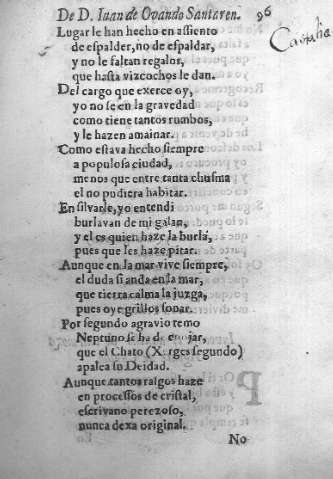 De D. Iuan de Ovando Santaren. 96
Lugar le han hecho en assiento
de espalder, no de espaldar,
y no le faltan regalos,
que hasta vizcochos le dan.
Del cargo que exerce oy,
yo no se en la gravedad
como tiene tantos rumbos,
y le hazen amainar.
Como estava hecho siempre
a populosa ciudad,
menos que entre tanta chusma
el no pudiera habitar.
En silvarle, yo entendi
burlavan de mi galan,
y el es quien haze la burla,
pues que les haze pitar.
Aunque en la mar vive siempre,
el duda si anda en la mar,
que tierra calma la juzga,
pues oye grillos sonar.
Por segundo agravio temo
Neptuno se ha de enojar,
que el Chato (Xerges segundo)
apalea su Deidad.
Aunque tantos rasgos haze
en processos de cristal,
escrivano perezoso,
nunca dexa original.
No